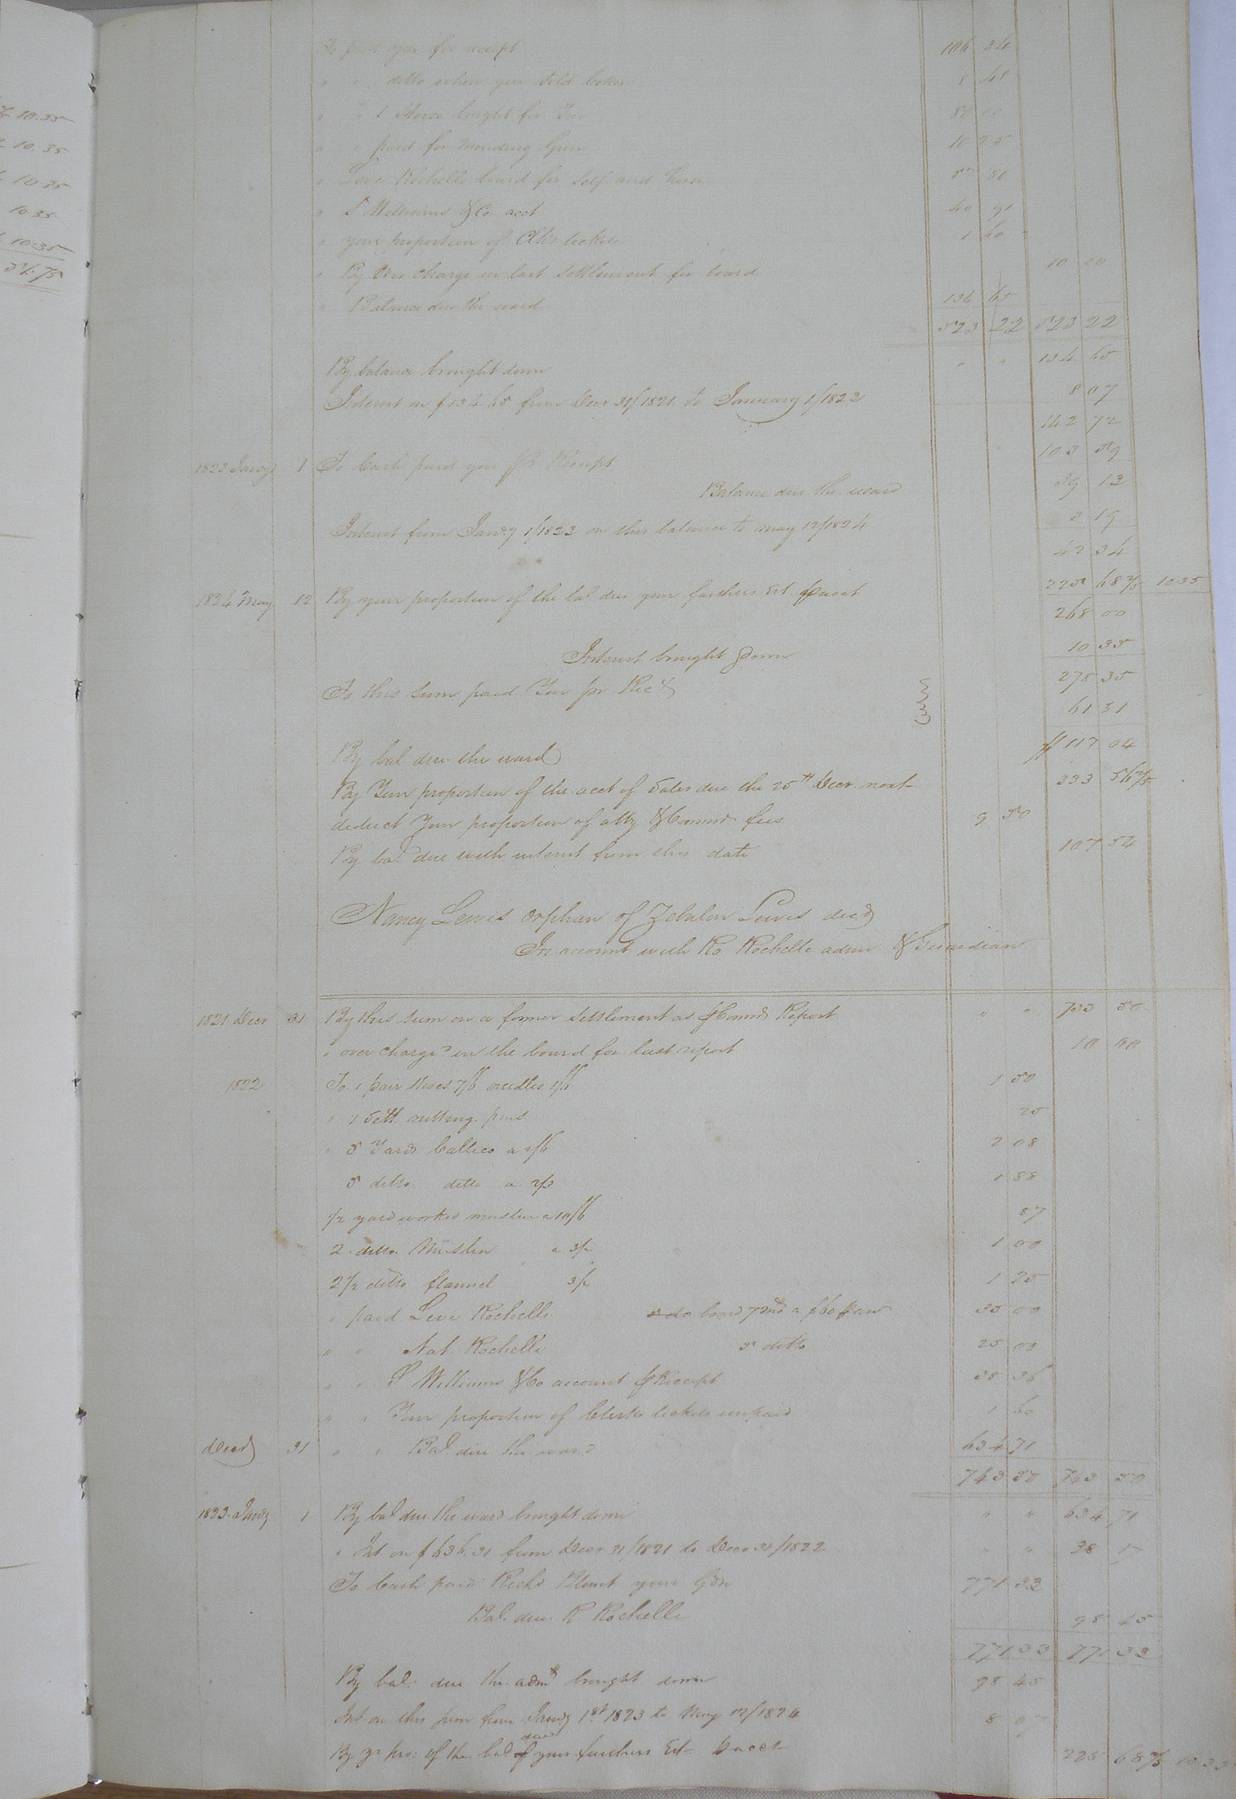 To paid you for receipt 106 24
" " ditto when you sold
" " 1 Horse bought for You 80 00
" " paid for mending Gun 10 25
" Levi Rochelle board for Self and Horse 87 50
" S Williams & Co acct 40 91
" your proportion of Clks tickets 1 60
" By Over charge in last settlement for board 10 00
" Balance due the ward 134 65
523 22 523 22
By balance brought down " " 134 65
Interest on $134 65 from Decr 31/1821 to January 1/1822 8 07
142 72
1823 Jany 1 To Cash paid you pr Receipt 103 59
Balance due the ward 39 13
Interest from Jany 1/1823 on this balance to may 12/1824 3 19
42 34
1824 May 12 By your proportion of the bal due your fathers Est pr acct 225 68 2/5 10 35
268 00
Interest brought Down 10 35
278 35
To this sum paid You pr Rect 61 31
By bal due the ward $117 04
By Your proportion of the acct of Sales due the 25th Decr next 333 56 2/5
deduct Your proportion of atty & Commr fees 9 50
By bal due with interest from this date 107 54
Nancy Lewis orphan of Zebulon Lewis decd
In account with Ro Rochelle admr & Guardian
1821 Decr 31 By this sum on a former settlement as pr Commrs Report " " 733 50
" over charge in the board for last report 10 00
1822 To 1 pair shoes 7/6 needles 1/6 1 50
" 1 Sett nitting pins 25
" 5 Yards Callico a 2/6 2 08
5 ditto ditto a 2/3 1 88
1/2 yard worked muslin a 10/6 87
2 ditto Muslin a 3/ 1 00
2 1/2 ditto flannel 3/ 1 25
" paid Levi Rochelle do board 7 mos a $60 pr an 35 00
" " Nat. Rochelle 5 ditto 25 00
" " S Williams & Co account pr Receipt 38 36
" " Your proportion of Clerks tickets unpaid 1 60
Decr 31 " " Bal due the ward 634 71
743 50 743 50
1823 Jany 1 By bal due the ward brought down " " 634 71
" Int on $636.31 from Decr 31/1821 to Decr 31/1822 " " 38 17
To Cash paid Richd Blount your Gdn 771 33
Bal due R Rochelle 98 45
771 33 771 33
By bal due the admr brought down 98 45
Int on this sum from Jany 1st 1823 to May 12/1824 8 07
By yr pro: of the bal due of your fathers Est pr acct 225 68 2/5 10 35